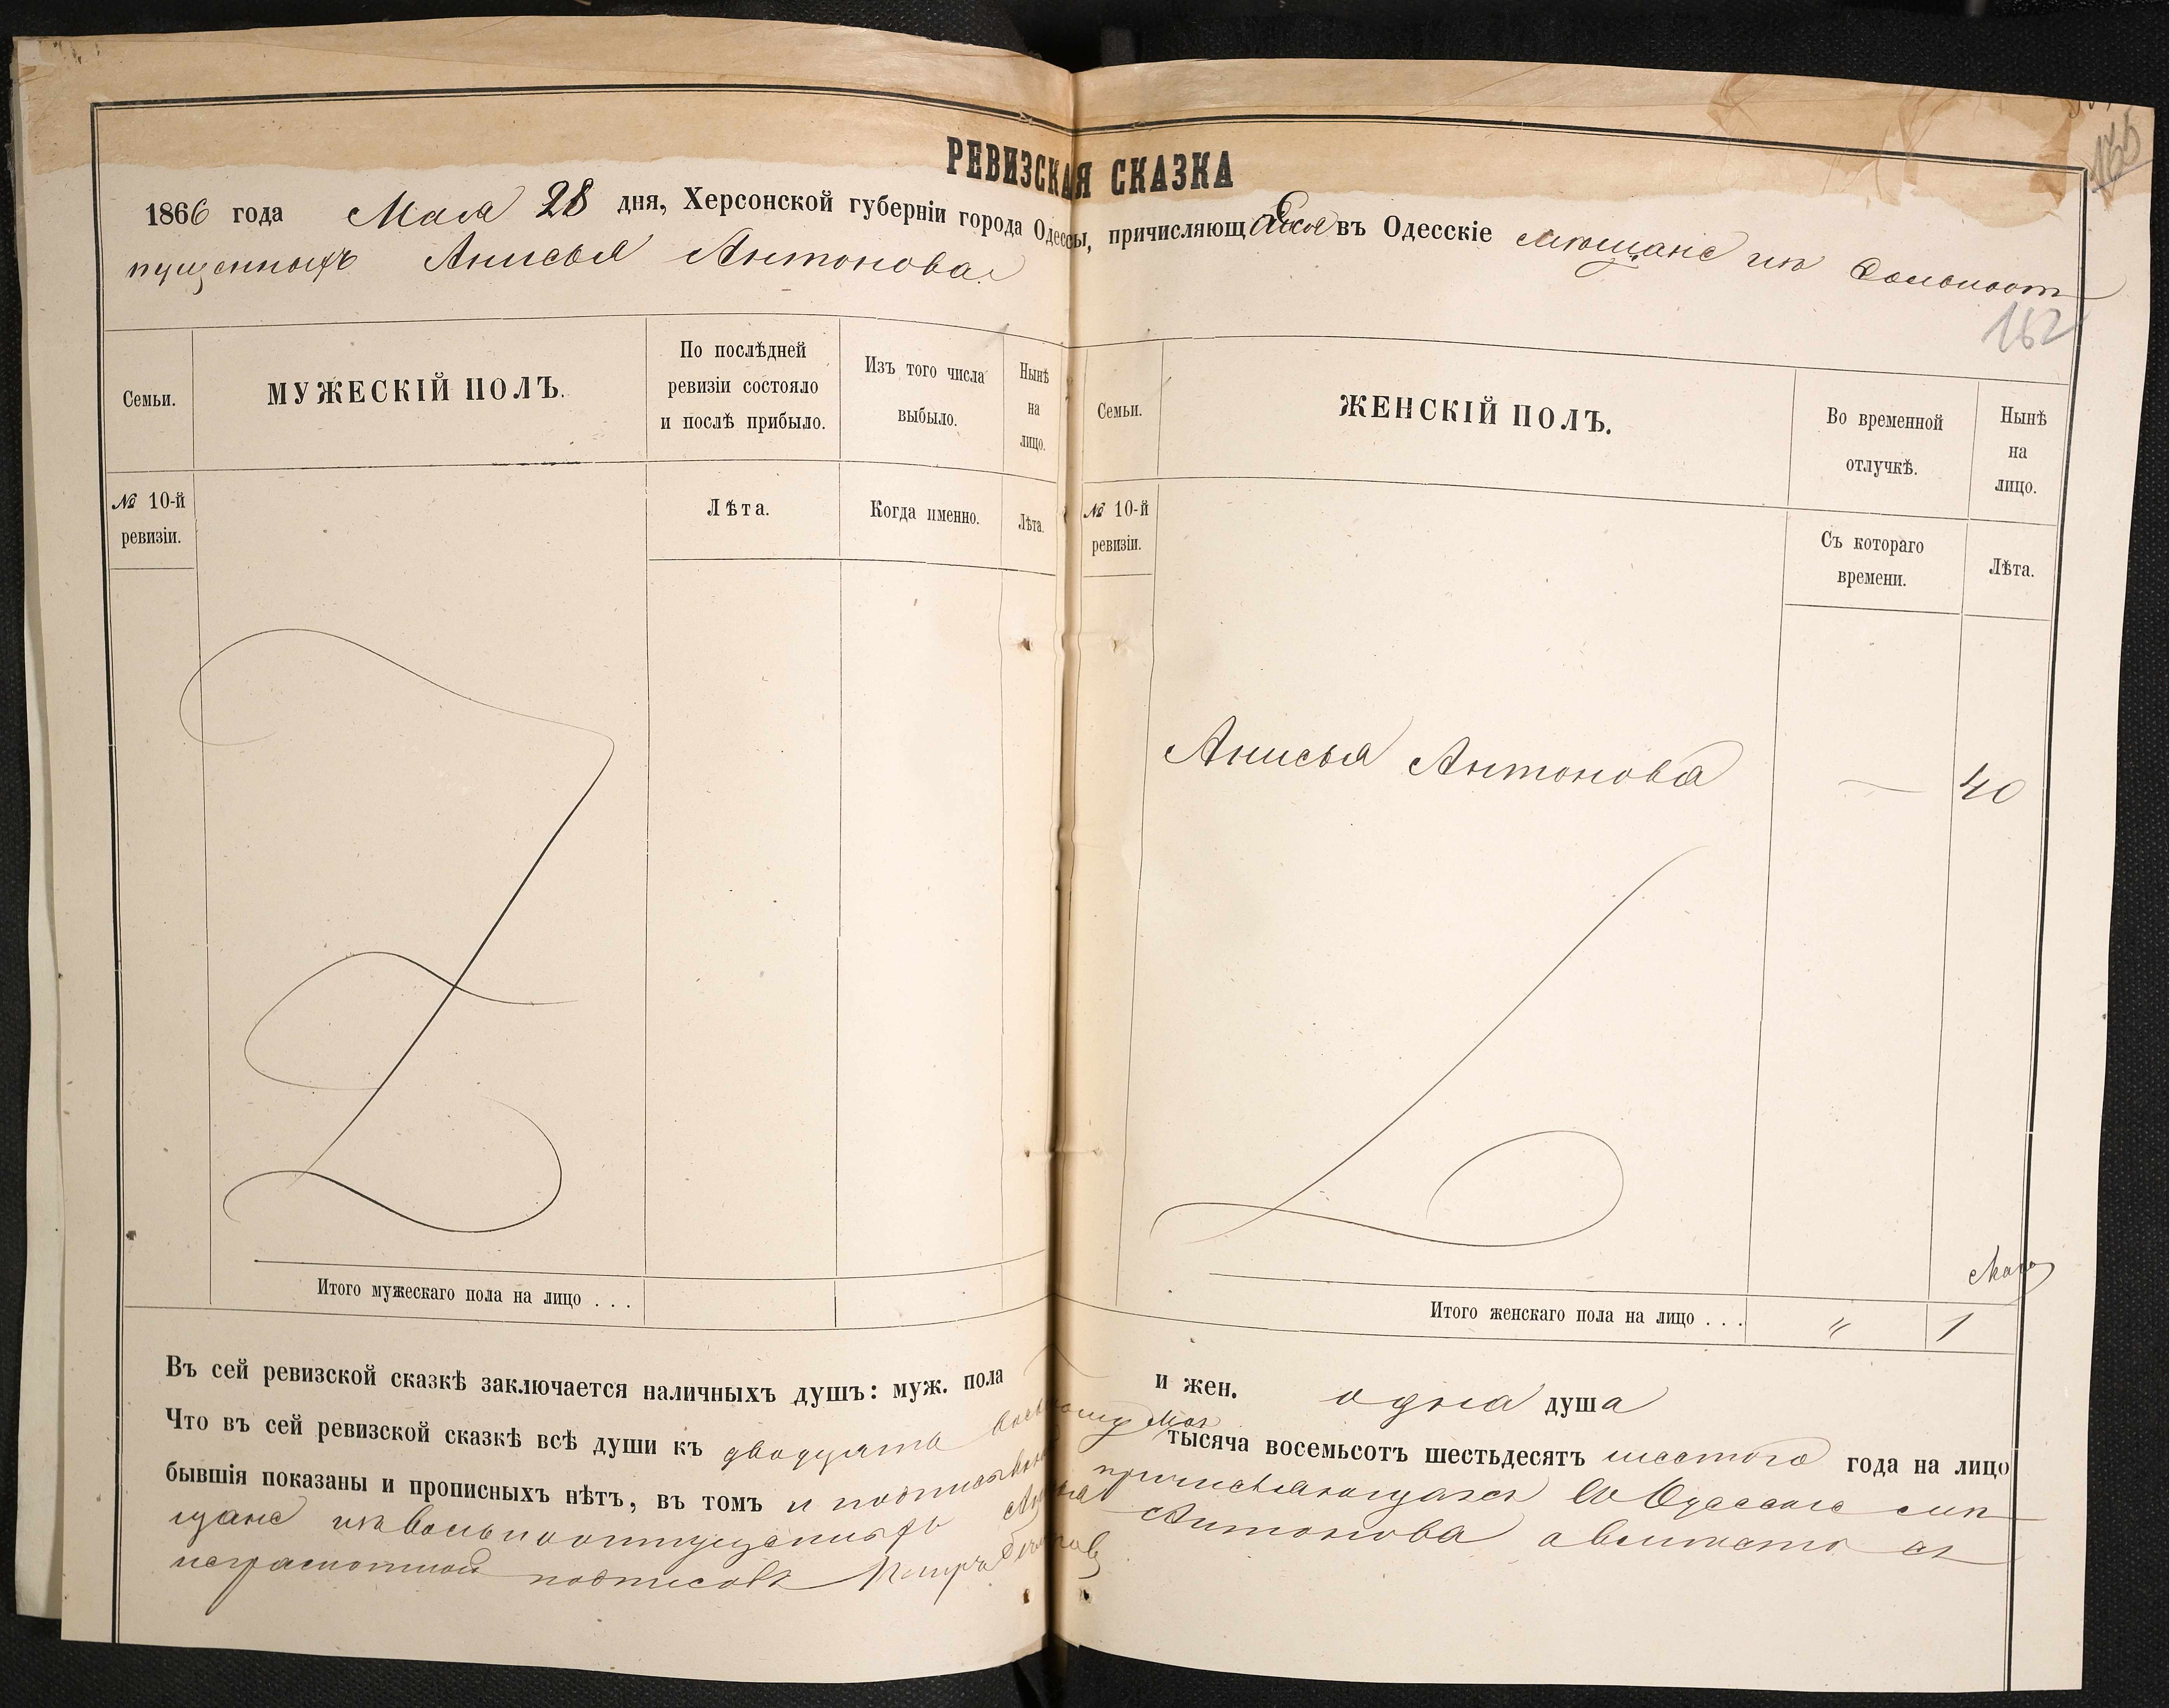 165
РЕВИЗСКАЯ СКАЗКА
1866 года Мая 28 дня, Херсонской губерніи города Одессы, причисляющейся въ Одесскіе мѣщане изъ вольноот
пущенныхъ Анисья Антонова.
162
Семьи.
МУЖЕСКІЙ ПОЛЪ.
По послѣдней
ревизіи состояло
и послѣ прибыло.
Изъ того числа
выбыло.
Нынѣ
на
лицо.
Семьи.
ЖЕНСКІЙ ПОЛЪ.
Во временной
отлучкѣ.
Нынѣ
на
лицо.
№ 10-й
ревизіи.
Лѣта.
Когда именно.
Лѣта.
№ 10-й
ревизіи.
Съ котораго
времени.
Лѣта.
Анисья Антонова — 40
Итого мужескаго пола на лицо . . .
Итого женскаго пола на лицо . . . " 1
Въ сей ревизской сказкѣ заключается наличныхъ душъ: муж. пола — и жен. одна душа
Что въ сей ревизской сказкѣ всѣ души къ двадцать восьмому Мая тысяча восемьсотъ шестьдесятъ шестого года на лицо
бывшія показаны и прописныхъ нѣтъ, въ томъ и подписываюсь причисляющаяся въ Одесскіе мѣ
щане изъ вольноотпущенныхъ Анисья Антонова а вмѣсто ея
неграмотной подписалъ Петръ